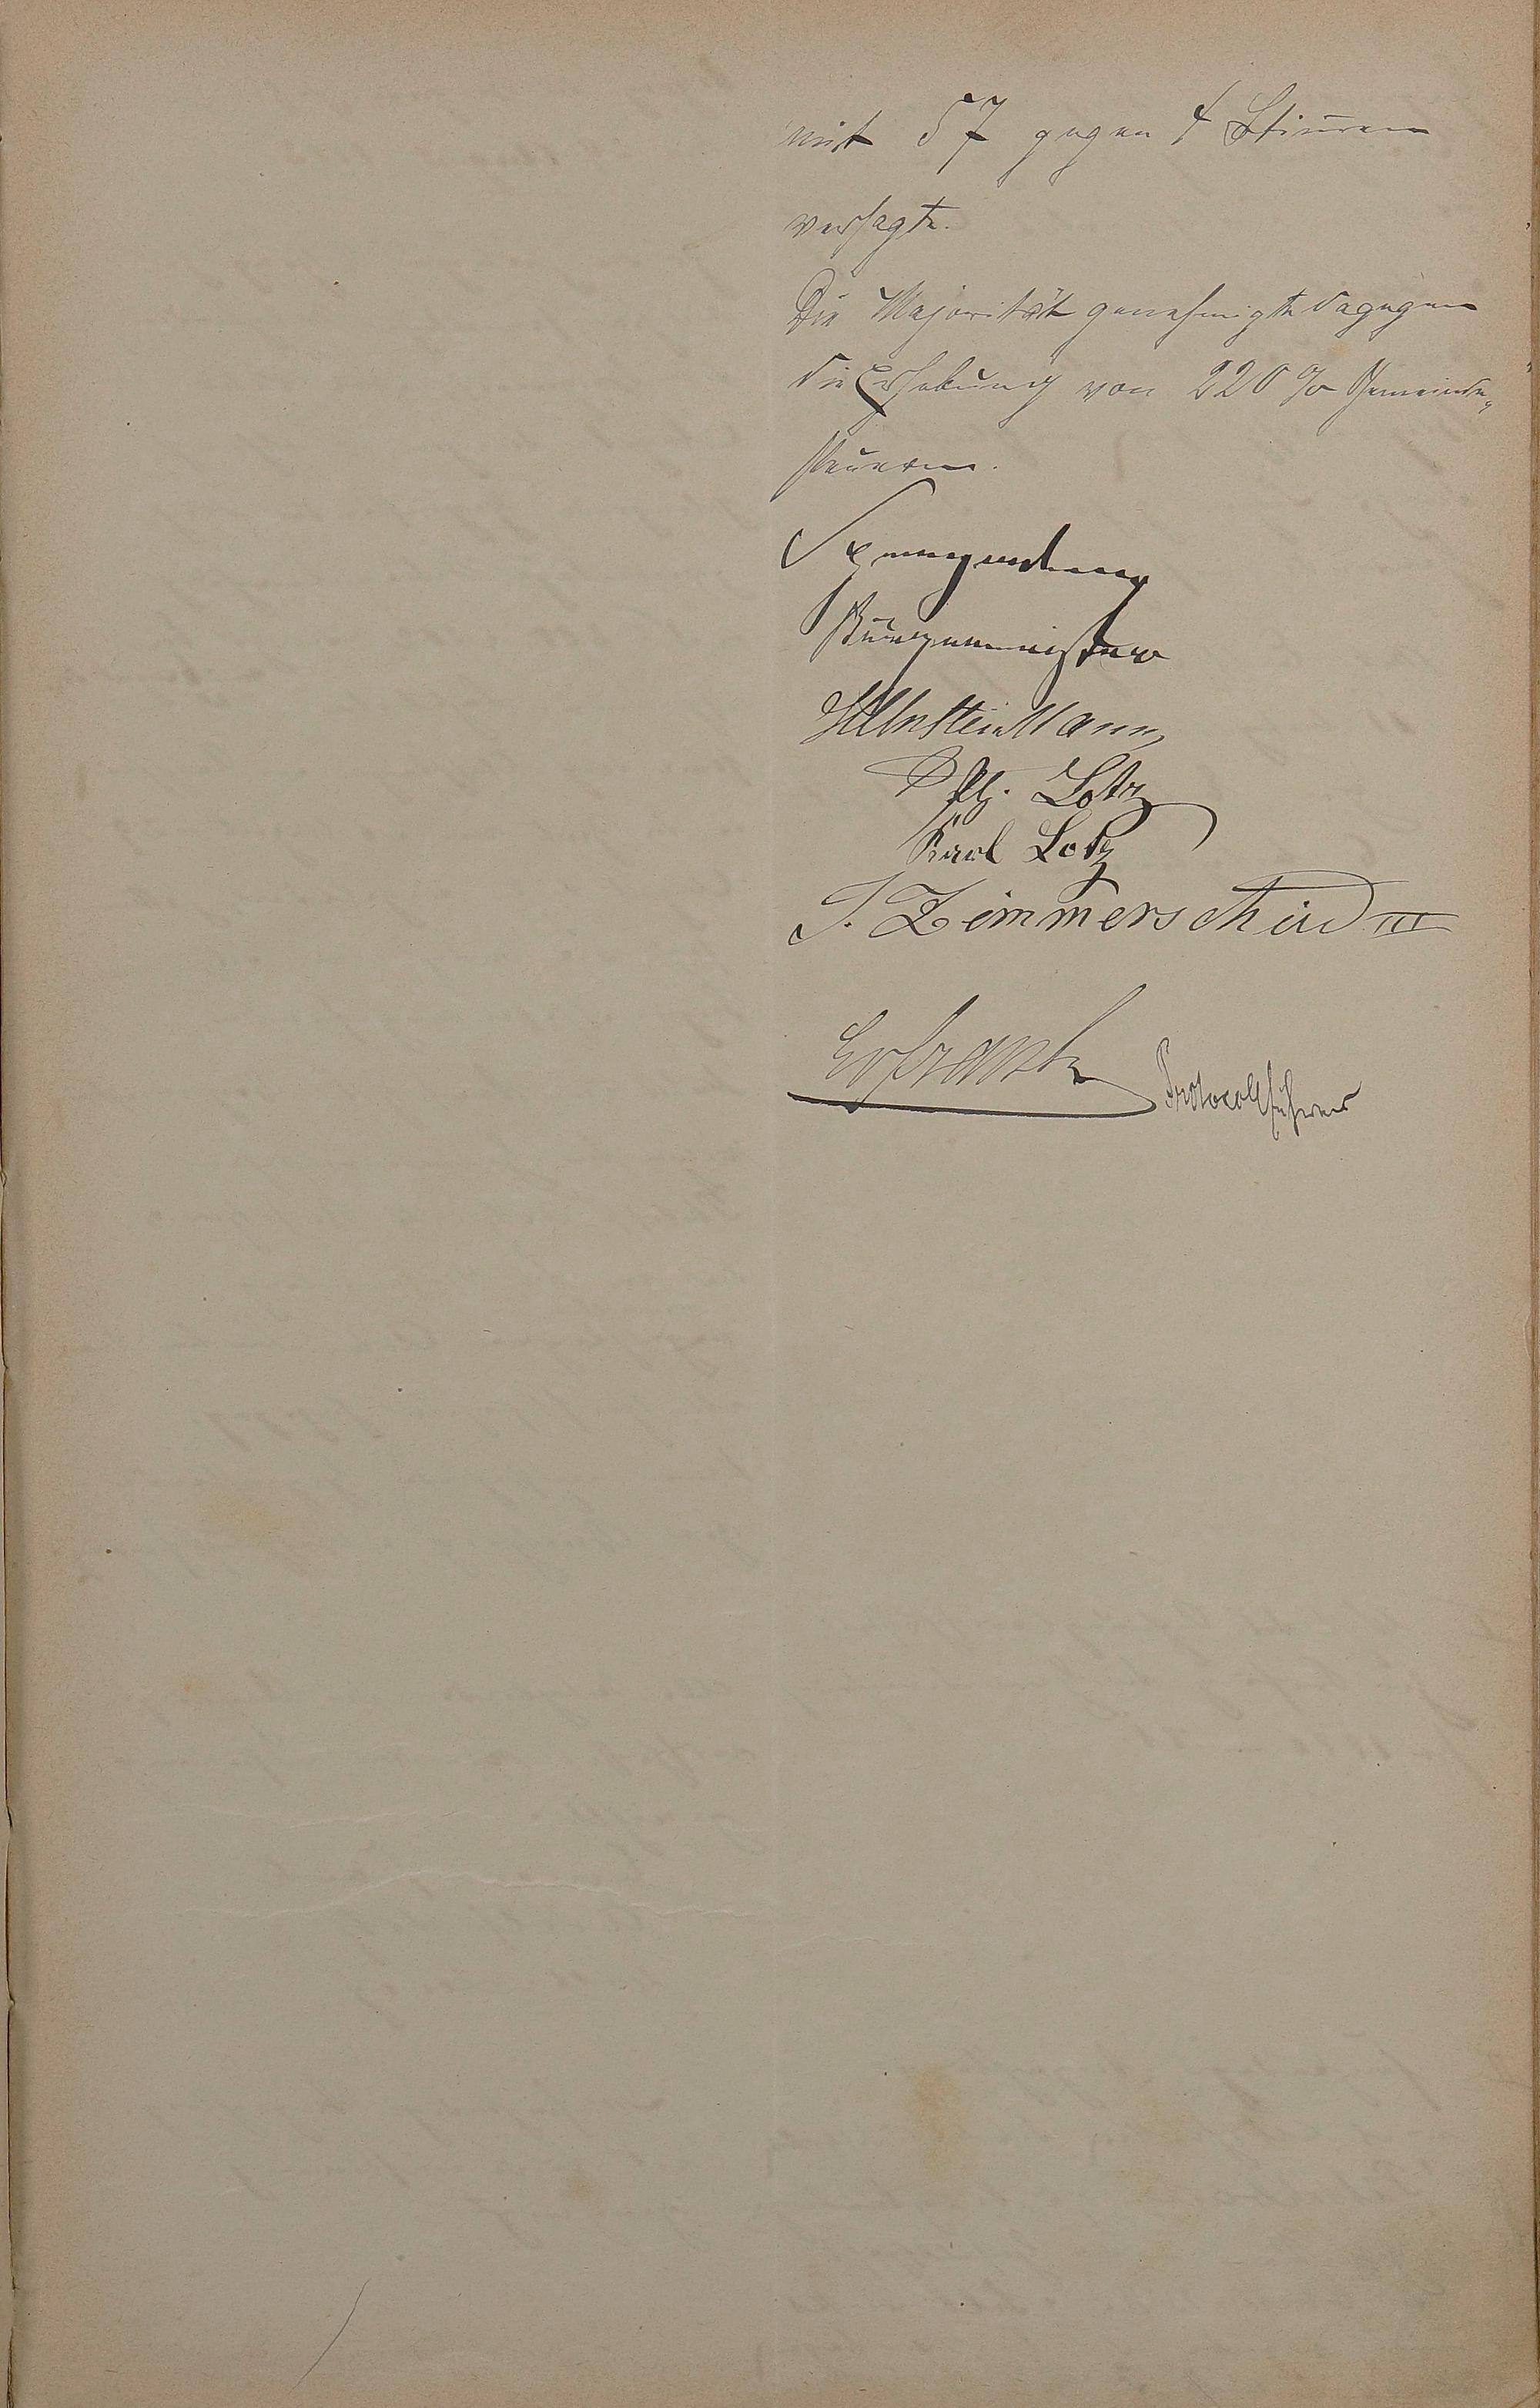 mit 57 gegen 4 Stim̄en
versagte.
Die Majorität genehmigte dagegen
die Erhebung von 220 % Gemeinde„
steuern.
Bürgermeister
Ph. Lotz
Karl Lotz
J. Zimmerschied III
Protocollführer